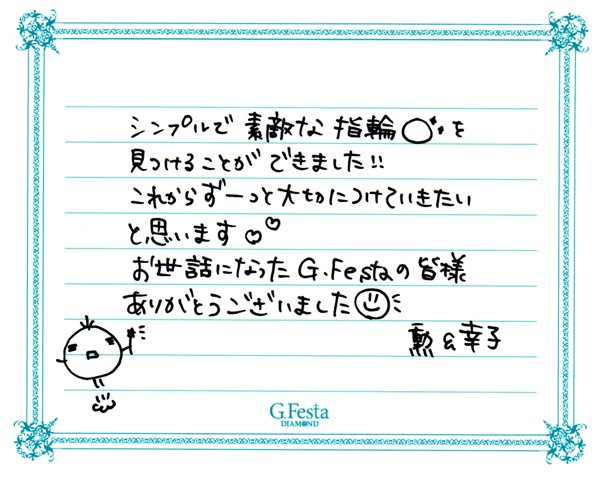 シンプルで素敵な指輪を
見つけることができました!!
これからずーっと大切につけていきたい
と思います♡♡
お世話になったG.Festaの皆様
ありがとうございました
勲&幸子
G.Festa
DIAMOND